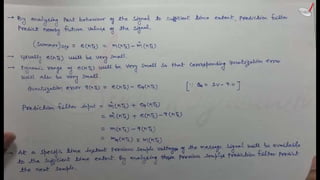 → By analysing Past behaviour of the signal to sufficient time extent, Prediction filter
Predict nearby future values of the signal.
(Summer)o/p = e(nTs) = m(nTs) - m̂(nTs)
→ Typically e(nTs) will be very small.
→ Dynamic range of e(nTs) will be very small so that corresponding Quantization error
will also be very small.
Quantization error q(nTs) = e(nTs) - eq(nTs)
Prediction filter input = m̂(nTs) + eq(nTs)
= m̂(nTs) + e(nTs) - q(nTs)
= m(nTs) - q(nTs)
= mq(nTs) ≈ m(nTs)
→ At a Specific time instant Previous sample voltages of the message signal will be available
to the sufficient time extent. By analysing those previous samples Prediction filter Predict
the next sample.